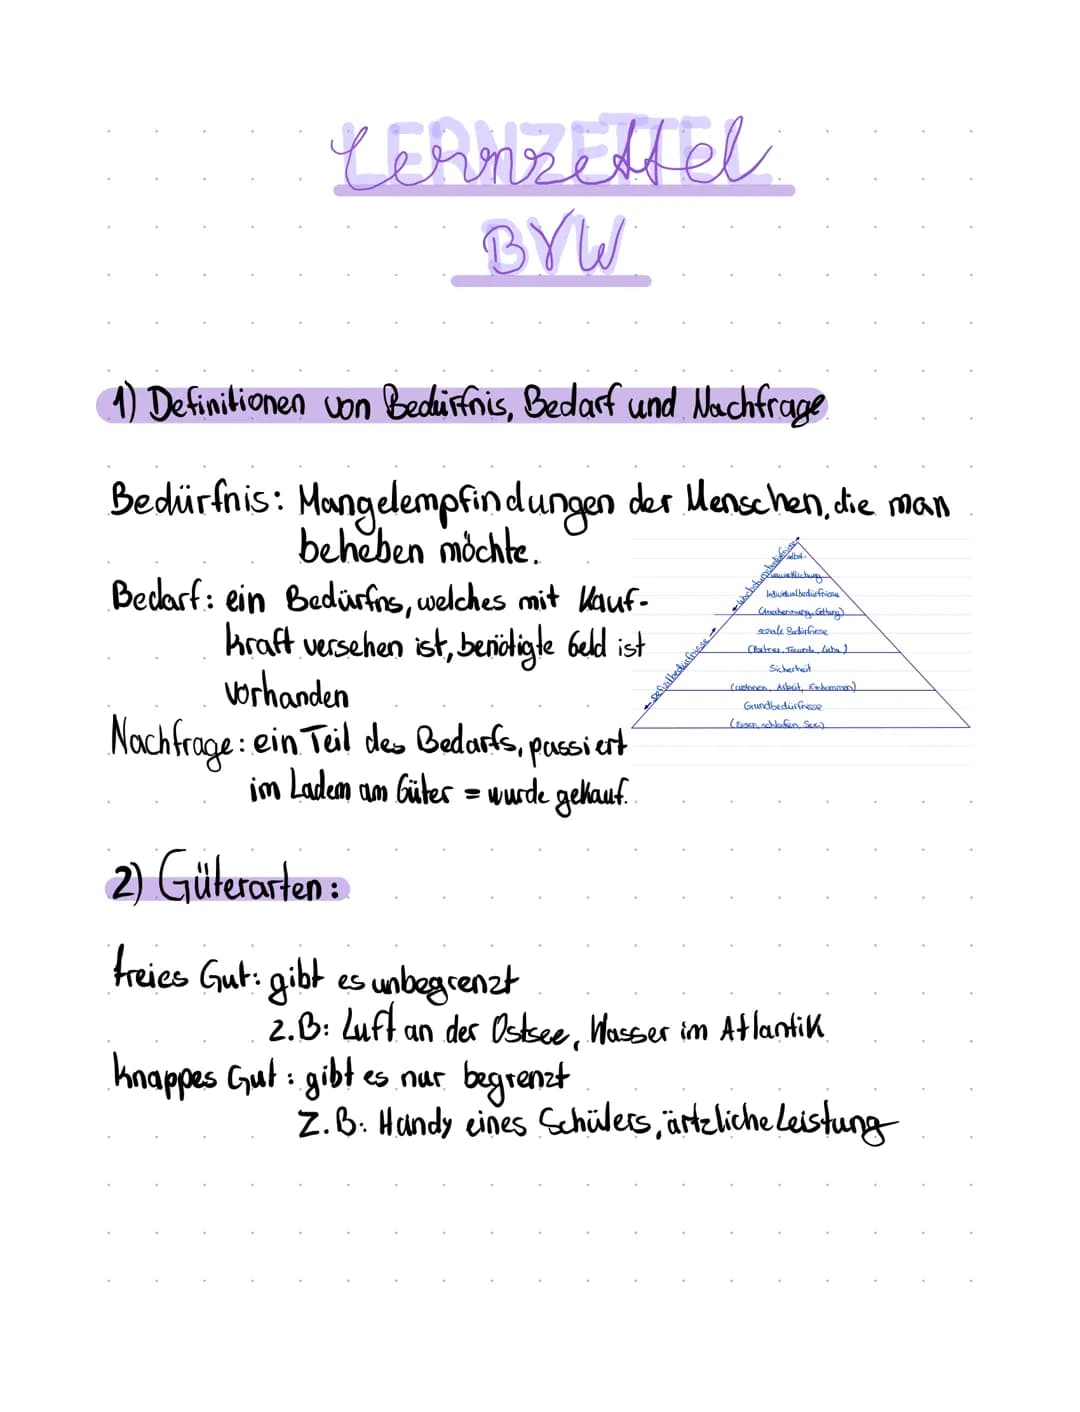 Lernzettel
BVW
1) Definitionen von Bedürfnis, Bedarf und Nachfrage
Bedürfnis: Mangelempfindungen der Menschen, die man
beheben möchte.
Bedarf: ein Bedürfns, welches mit Kauf-
kraft versehen ist, benötigte Geld ist
vorhanden
Nachfrage: ein Teil des Bedarfs, passiert
im Ladem am Güter = wurde gekauf.
Wachstumsbedürfnisse
Defizitbedürfnisse
Selbst-
verwirklichung
Individualbedürfnisse
(Anerkennung, Geltung)
soziale Bedürfnisse
(Partner, Freunde, Liebe)
Sicherheit
(wohnen, Arbeit, Einkommen)
Grundbedürfnisse
(Essen, schlafen, Sex)
2) Güterarten:
freies Gut: gibt es unbegrenzt
z.B: Luft an der Ostsee, Wasser im Atlantik
Knappes Gut: gibt es nur begrenzt
Z.B: Handy eines Schülers, ärtzliche Leistung